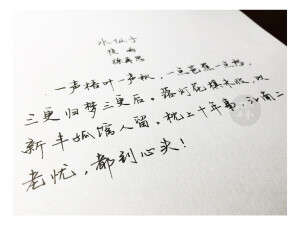 水仙子
夜雨
徐再思
一声梧叶一声秋，一点芭蕉一点愁，
三更归梦三更后。落灯花棋未收，叹
新丰孤馆人留。枕上十年事，江南二
老忧，都到心头！